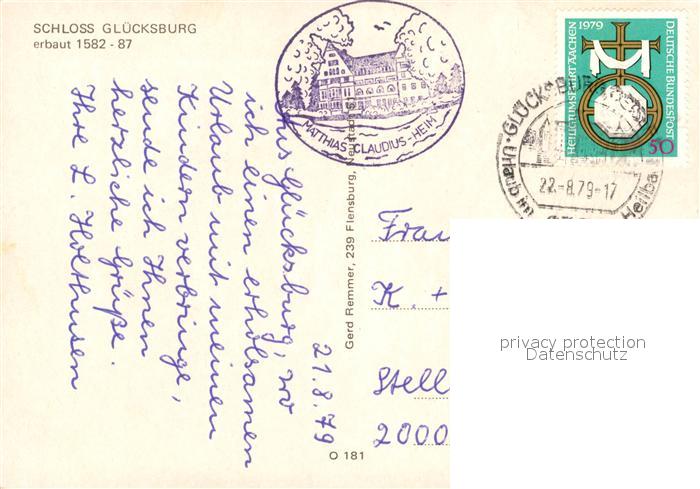 SCHLOSS GLÜCKSBURG
erbaut 1582 - 87
MATTHIAS-CLAUDIUS-HEIM
HEILIGTUMSFAHRT AACHEN 1979
DEUTSCHE BUNDESPOST
50
GLÜCKSBURG
Urlaub im
Heilbad
22.-8.79-17
21.8.79
Aus Glücksburg, wo
ich einen erholsamen
Urlaub mit meinen
Kindern verbringe,
sende ich Ihnen
herzliche Grüße.
Ihre L. Holthusen
Gerd Remmer, 239 Flensburg, Neustadt
O 181
Frau
K. +
Stell
2000
privacy protection
Datenschutz